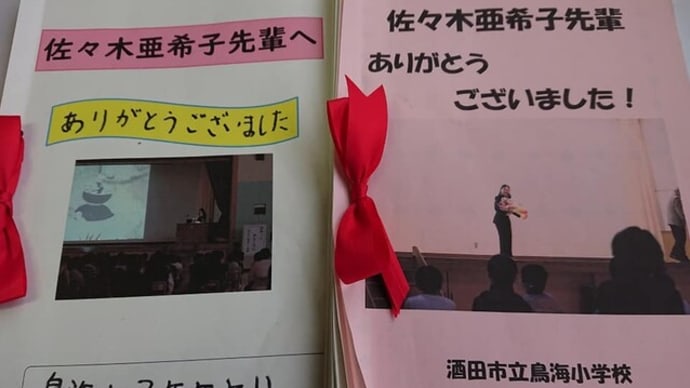 佐々木亜希子先輩へ
ありがとうございました
佐々木亜希子先輩
ありがとう
ございました！
酒田市立鳥海小学校